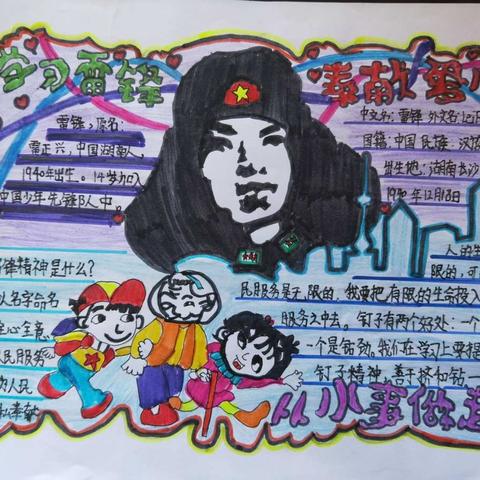 学习雷锋
奉献爱心
雷锋，原名：
雷正兴，中国湖南人，
1940年出生。14岁加入
中国少年先锋队入中。
中文名：雷锋 外文名：
国籍：中国 民族：汉族
出生地：湖南长沙
1940年12月18日
锋精神是什么？
以名字命名
全心全意
民服务
为人民
私奉献
人的生
限的，可
民服务是无限的，我要把有限的生命投入
服务之中去。钉子有两个好处：一个
一个是钻劲。我们在学习上要提
钉子精神，善于挤和钻。
从小事做起